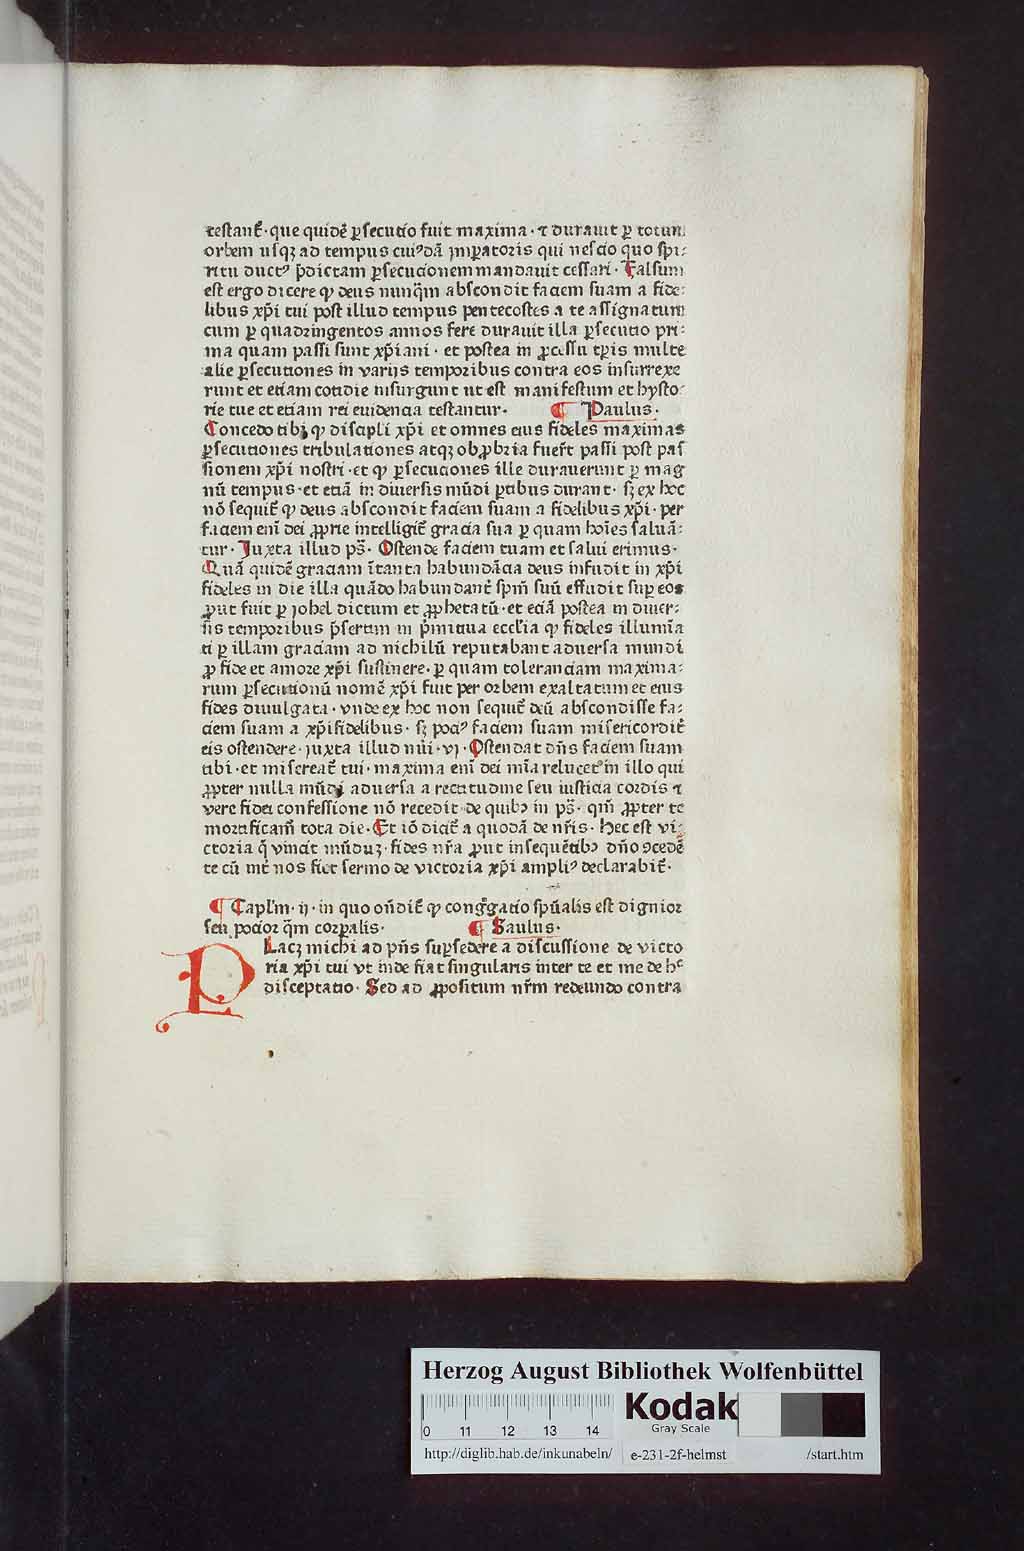 testant̃·que quidē ꝑsecutio fuit maxima·⁊ durauit ꝑ totum
orbem usqꝫ ad tempus cuiꝰdā imꝑatoris qui nescio quo spi⸗
ritu ductꝰ p̄dictam ꝑsecucionem mandauit cessari· Falsum
est ergo dicere ꝙ deus nunq̄m abscondit faciem suam a fide⸗
libus xp̄i tui post illud tempus pentecostes a te assignatum
cum ꝑ quadringentos annos fere durauit illa ꝑsecutio pri⸗
ma quam passi sunt xp̄iani· et postea in ꝓcessu tp̄is multe
alie ꝑsecutiones in varijs temporibus contra eos insurrexe
runt et etiam cotidie insurgunt ut est manifestum et hysto⸗
rie tue et etiam rei euidencia testantur· ¶ Paulus·
Concedo tibi ꝙ discipli xp̄i et omnes eius fideles maximas
ꝑsecutiones tribulationes atqꝫ obꝓbria fuer̄t passi post pas
sionem xp̄i nostri·et ꝙ ꝑsecuciones ille durauerunt ꝑ mag
nū tempus·et etiā in diuersis mūdi ꝑtibus durant· sꝫ ex hoc
nō sequit̃ ꝙ deus abscondit faciem suam a fidelibus xp̄i· per
faciem enī dei ꝓprie intelligit̃ gracia sua ꝑ quam hoīes saluā⸗
tur· Juxta illud ps̄· Ostende faciem tuam et salui erimus·
Quā quidē graciam ī tanta habundācia deus infudit in xp̄i
fideles in die illa quādo habundant̃ sp̄m suū effudit suꝑ eos
ꝓut fuit ꝑ johel dictum et ꝓphetatū·et eciā postea in diuer⸗
sis temporibus p̄sertim in p̄mitiua eccl̄ia ꝙ fideles illumīa
ti ꝑ illam graciam ad nichilū reputabant aduersa mundi
ꝓ fide et amore xp̄i sustinere· ꝑ quam toleranciam maxima⸗
rum ꝑsecutionū nomē xp̄i fuit per orbem exaltatum et eius
fides diuulgata· vnde ex hoc non sequit̃ deū abscondisse fa⸗
ciem suam a xp̄i fidelibus· sꝫ pociꝰ faciem suam misericordit̃
eis ostendere·juxta illud nūi·vj· Ostendat dn̄s faciem suam
tibi·et misereat̃ tui·maxima enī dei mīa relucet in illo qui
ꝓpter nulla mūdi aduersa a rectitudine seu iusticia cordis ⁊
vere fidei confessione nō recedit·de quibꝰ in ps̄· qm̄ ꝓpter te
mortificam̃ tota die·Et iō dicit̃ a quodā de nr̄is· Hec est vi⸗
ctoria q̄ vincit mūduꝫ·fides nr̄a ꝓut insequētibꝰ dn̄o ꝯcedē
te cū int̃ nos fiet sermo de victoria xp̄i ampliꝰ declarabit̃·
¶ Capl̄m·ij·in quo on̄dit̃ ꝙ cong̃gatio sp̄ualis est dignior
seu pocior q̄m corꝑalis· ¶ Saulus·
PLacꝫ michi ad pn̄s suꝑsedere a discussione de victo
ria xp̄i tui vt inde fiat singularis inter te et me de hᶜ
disceptatio· Sed ad ꝓpositum nr̄m redeundo contra
Herzog August Bibliothek Wolfenbüttel
0 11 12 13 14
Kodak
Gray Scale
http://diglib.hab.de/inkunabeln/ e-231-2f-helmst /start.htm